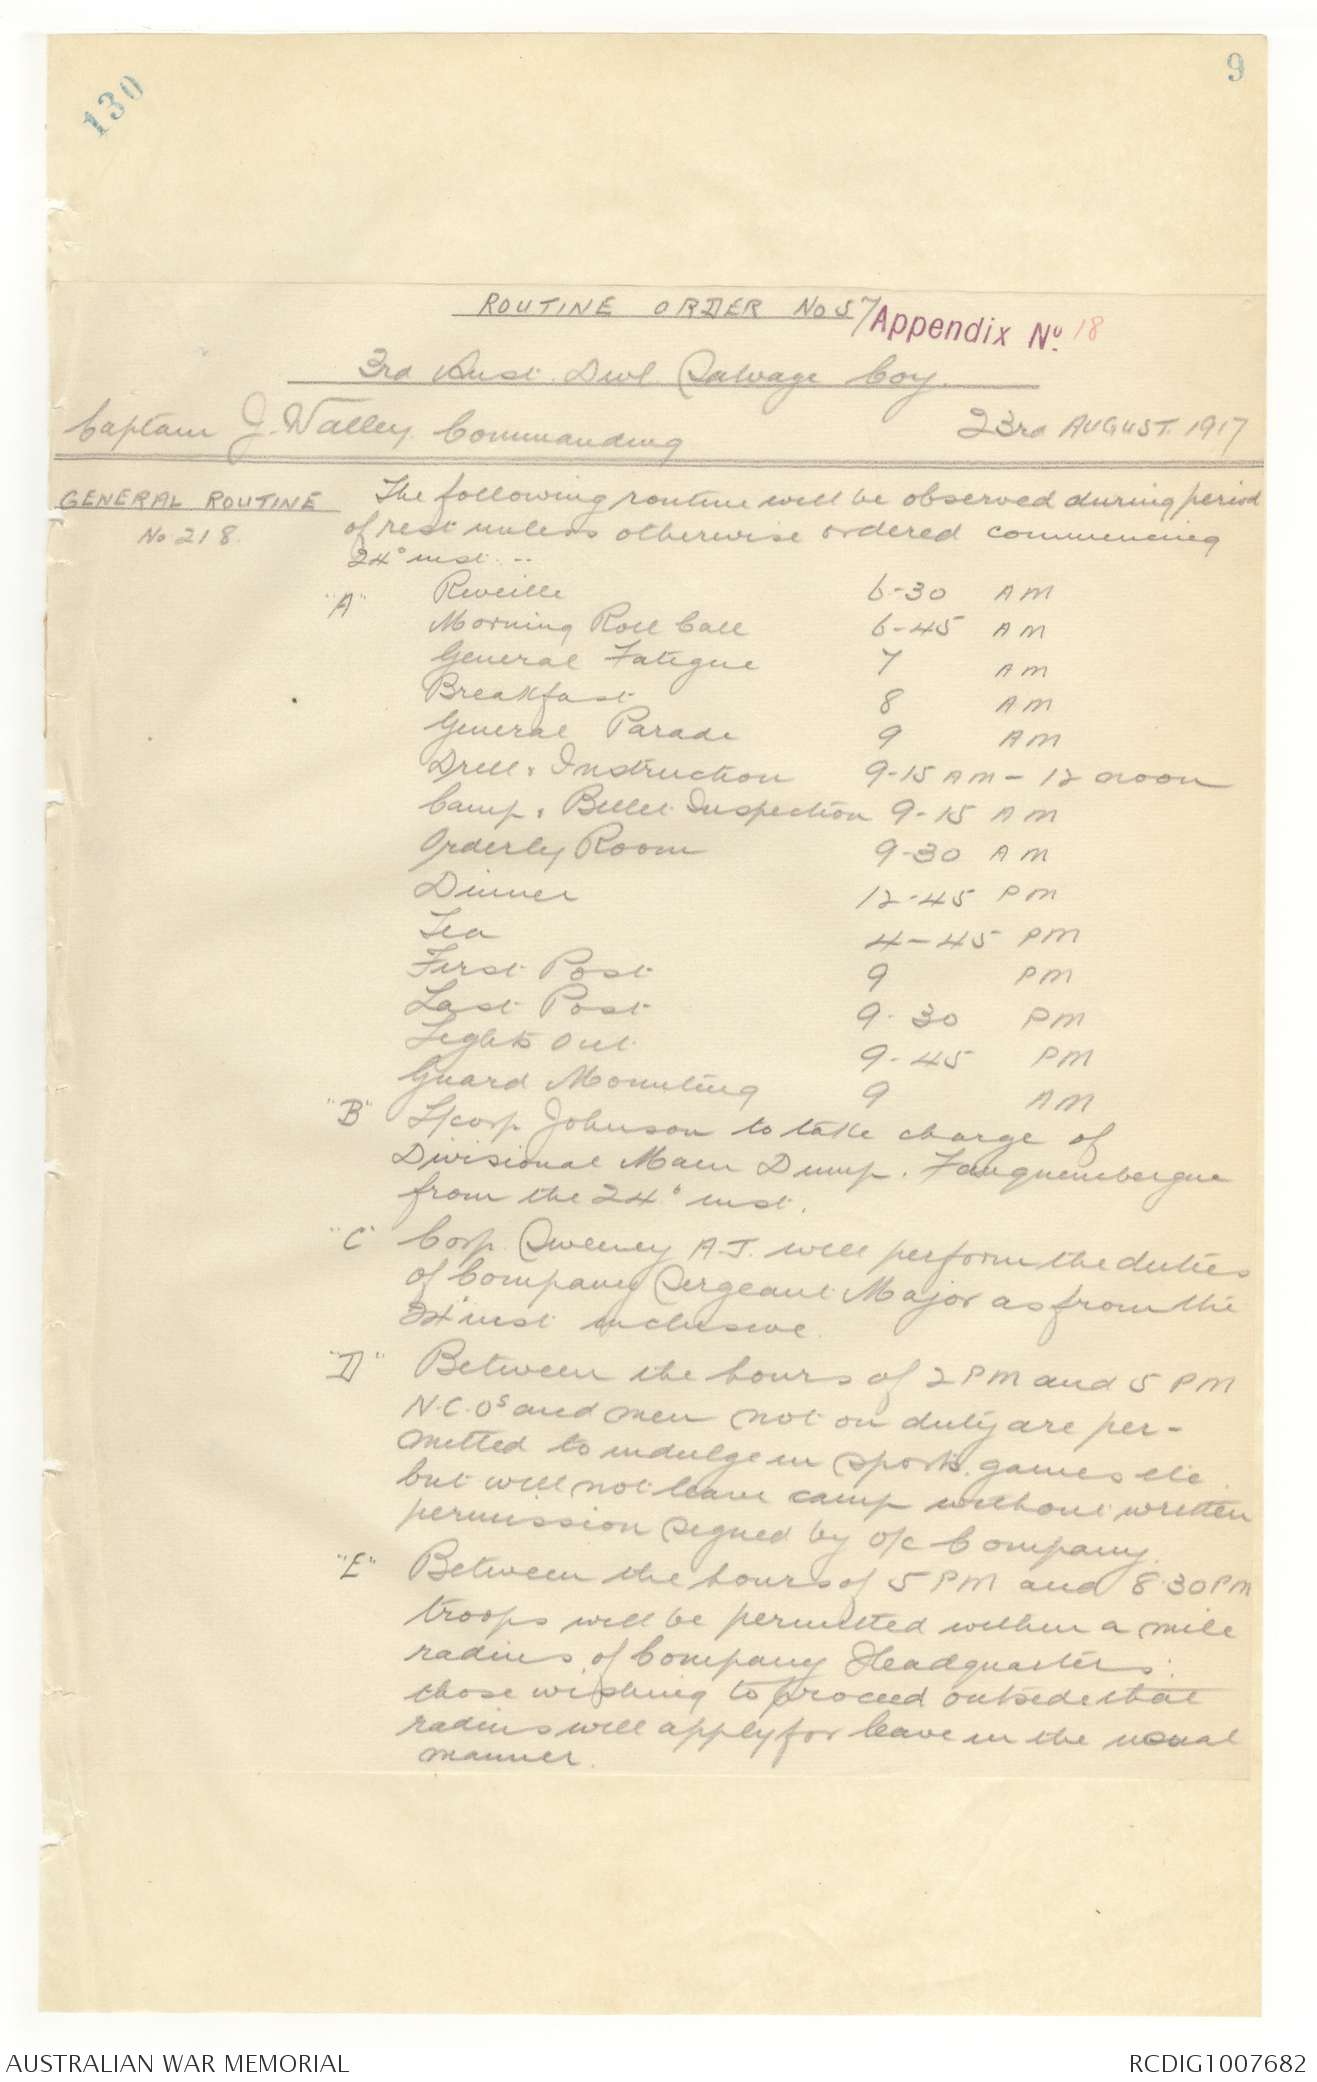 130
9
ROUTINE ORDER No 57
Appendix No. 18
3rd Aust. Divl. Salvage Coy.
Captain J. Walley. Commanding
23rd AUGUST. 1917
GENERAL ROUTINE
No 218.
The following routine will be observed during period
of rest unless otherwise ordered commencing
24° inst. --
"A" Reveille 6-30 AM
Morning Roll Call 6-45 AM
General Fatigue 7 AM
Breakfast 8 AM
General Parade 9 AM
Drill & Instruction 9-15 AM - 12 noon
Camp & Billet Inspection 9-15 AM
Orderly Room 9-30 AM
Dinner 12-45 PM
Tea 4-45 PM
First Post 9 PM
Last Post 9.30 PM
Lights Out 9-45 PM
Guard Mounting 9 AM
"B" L/corp Johnson to take charge of
Divisional Main Dump. Fauquembergue
from the 24° inst.
"C" Corp. Sweeney A.J. will perform the duties
of Company Sergeant Major as from the
24° inst inclusive.
"D" Between the hours of 2 PM and 5 PM
N.C.Os and men not on duty are per-
mitted to indulge in sports. games etc
but will not leave camp without written
permission signed by O/c Company.
"E" Between the hours of 5 PM and 8.30 PM
troops will be permitted within a mile
radius of Company Headquarters:
those wishing to proceed outside that
radius will apply for leave in the usual
manner.
AUSTRALIAN WAR MEMORIAL
RCDIG1007682